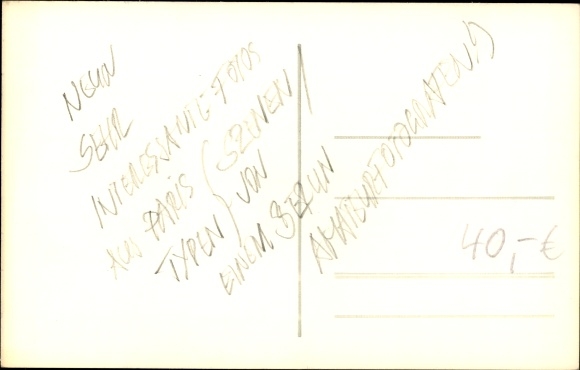 NEUN
SEHR
INTERESSANTE FOTOS
AUS PARIS (SZENEN/
TYPEN) VON
EINEM BERLIN
AMATEURFOTOGRAFEN!)
40,-€